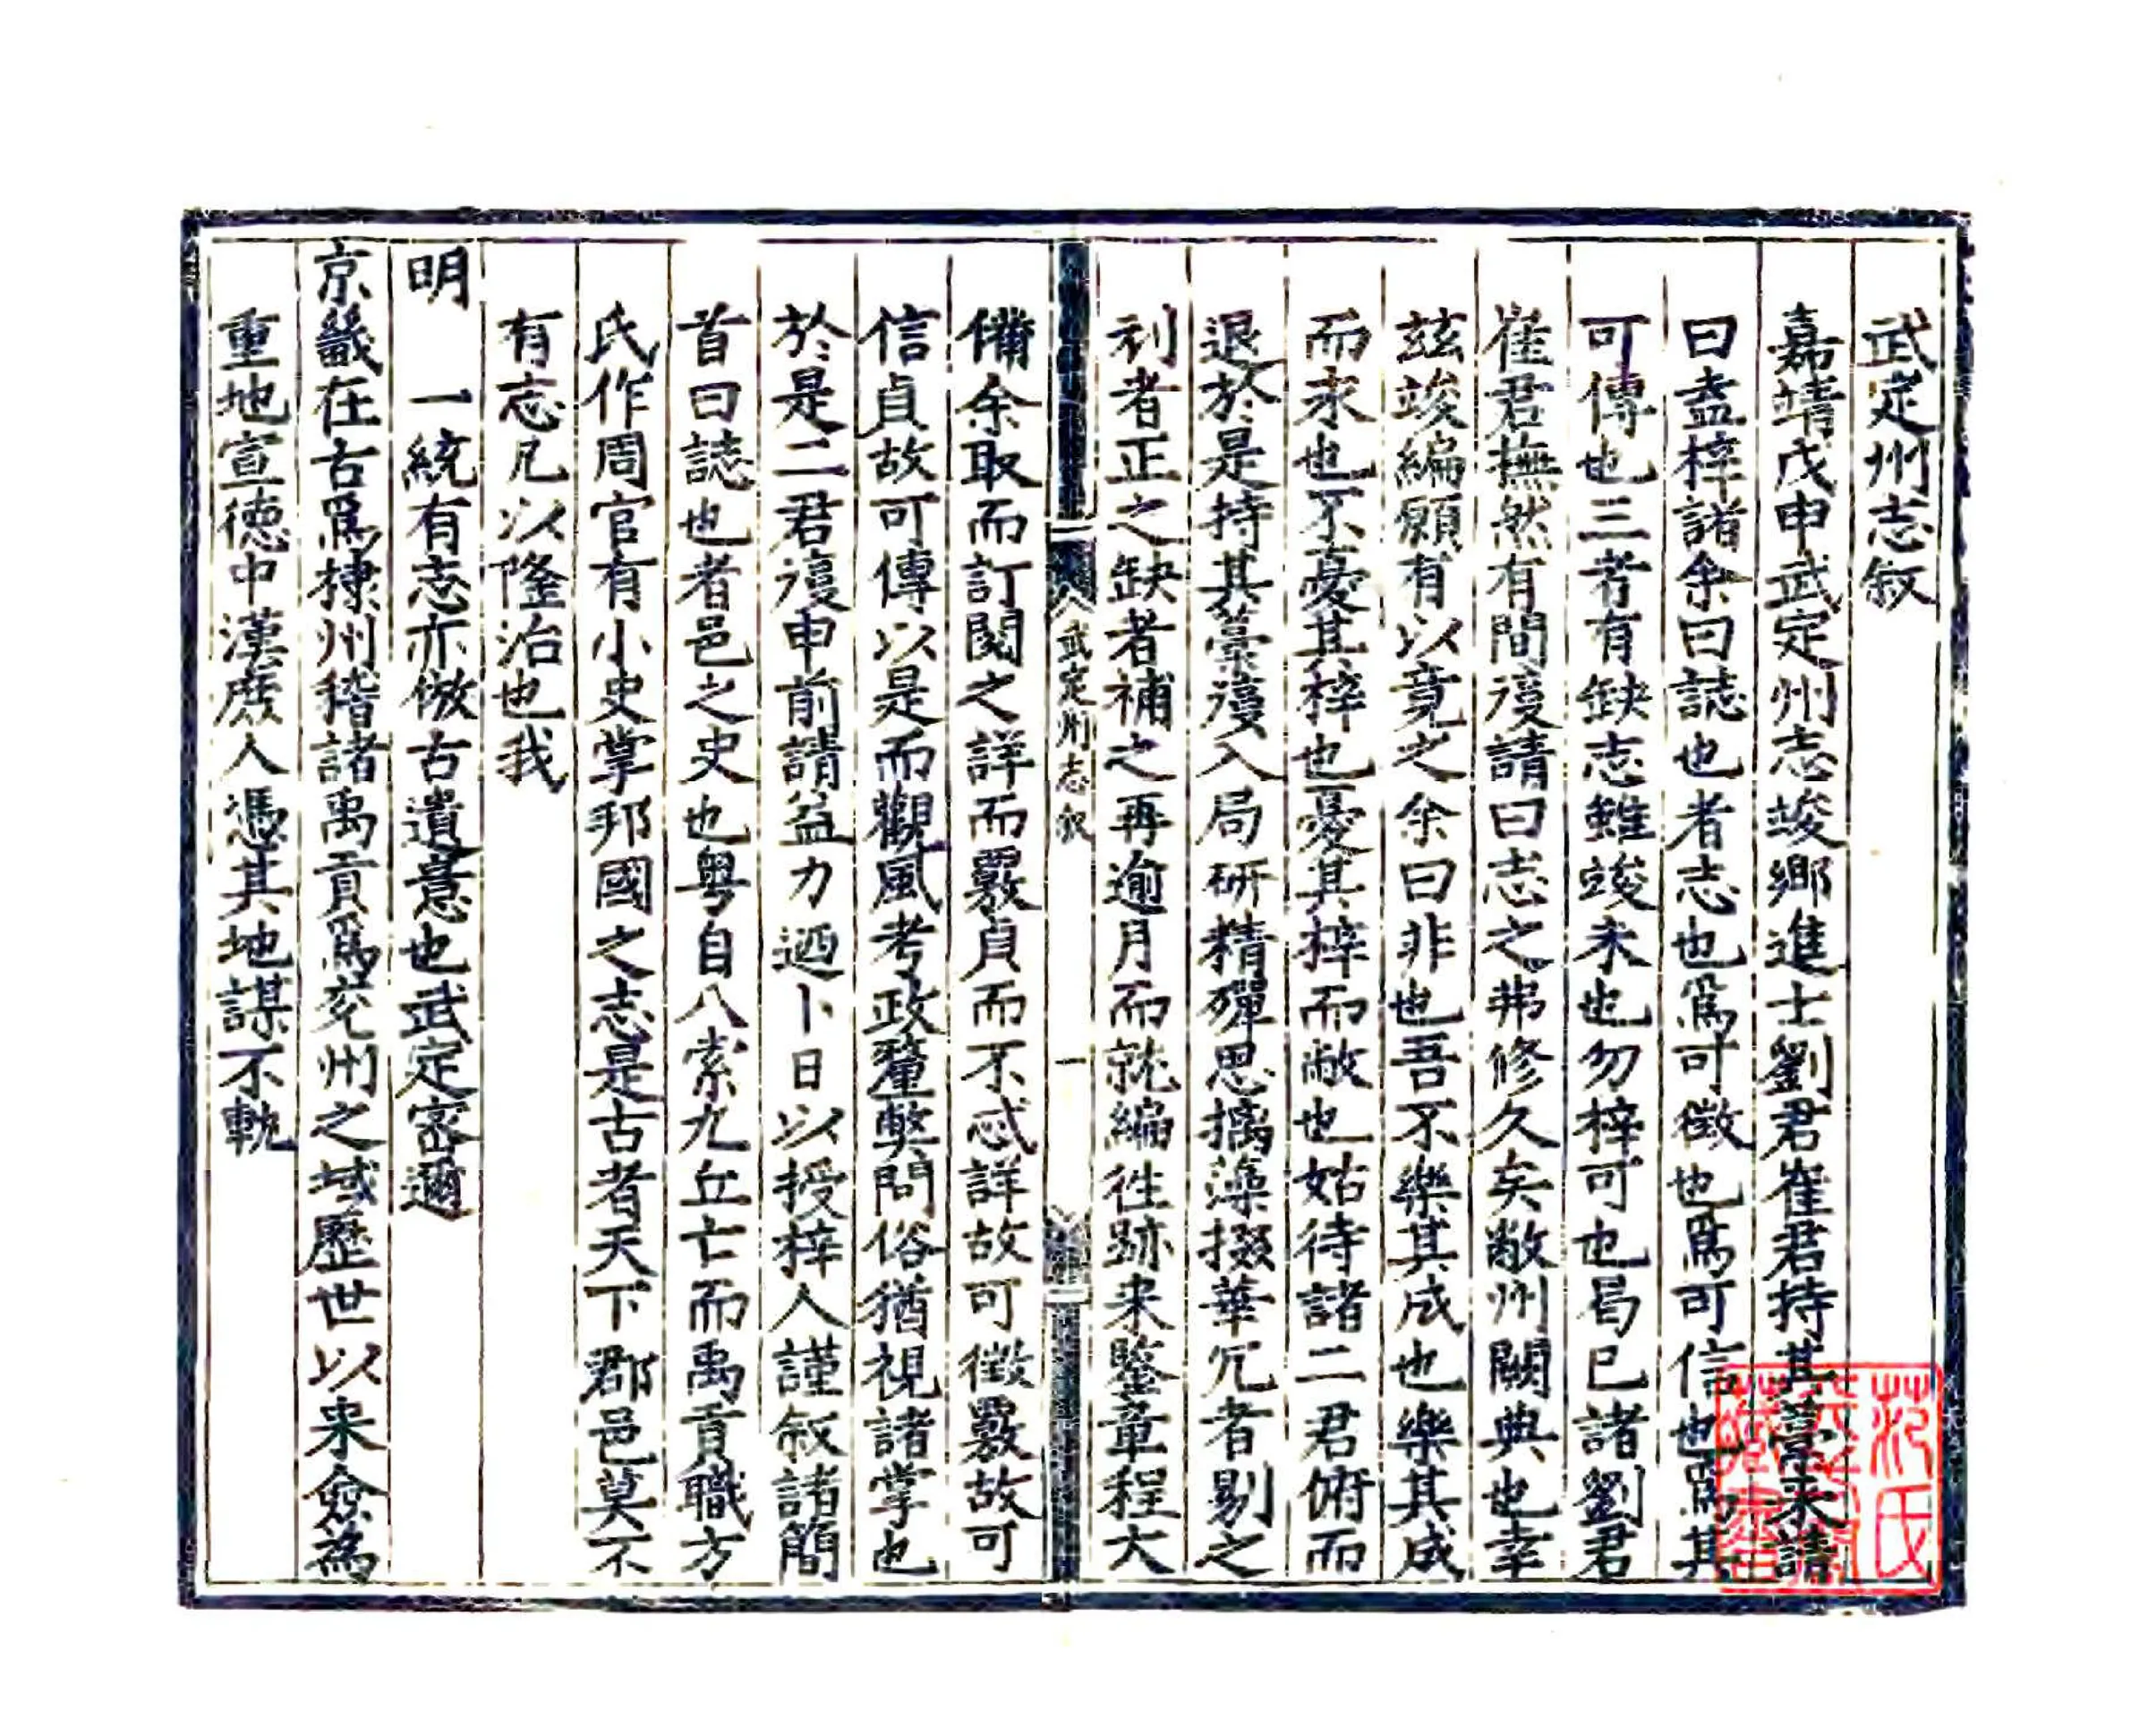 武定州志叙
嘉靖戊申武定州志竣鄉進士劉君崔君持其藁来請
曰盍梓諸余曰誌也者志也爲可徴也爲可信也爲其
可傳也三者有缺志雖竣未也勿梓可也曷已諸劉君
崔君撫然有間復請曰志之弗修久矣敝州闕典也幸
玆竣編願有以竟之余曰非也吾不樂其成也樂其成
而永也不憂其梓也憂其梓而敝也姑待諸二君俯而
退於是持其藁復入局研精殫思摛藻掇華冗者剔之
利者正之缺者補之再逾月而就編徃跡来鑒章程大
武定州志叙
一
備余取而訂閱之詳而覈貞而不忒詳故可徴覈故可
信貞故可傳以是而觀風考政釐弊問俗猶視諸掌也
於是二君復申前請益力廼卜日以授梓人謹叙諸簡
首曰誌也者邑之史也粤自八索九丘亡而禹貢職方
氏作周官有小史掌邦國之志是古者天下郡邑莫不
有志凡以隆治也我
明 一統有志亦倣古遺意也武定密邇
京畿在古爲棣州稽諸禹貢爲兖州之域歷世以来僉為
重地宣德中漢庶人馮其地謀不軌
范氏
天一閣
藏書